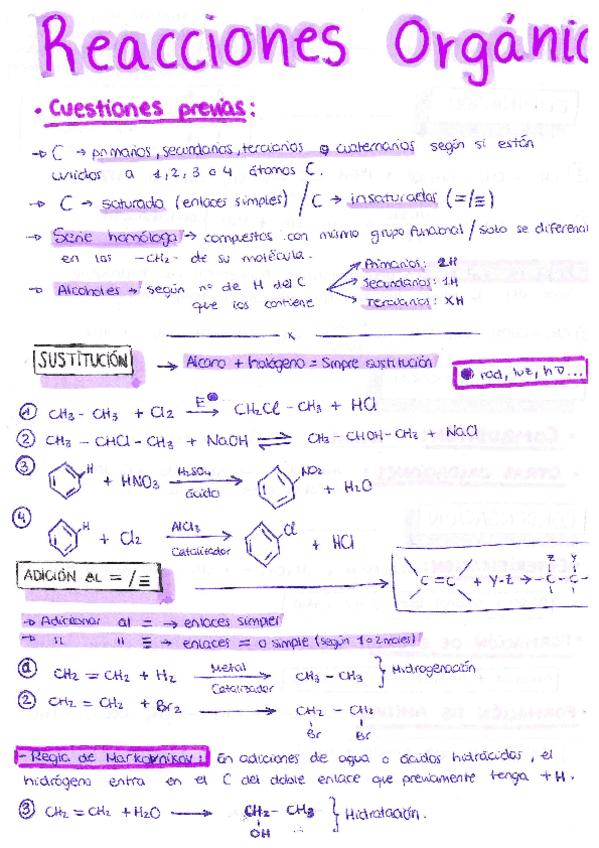 Reacciones Orgánic
• Cuestiones previas:
→ C → primarios, secundarios, terciarios o cuaternarios según si están
unidos a 1, 2, 3 o 4 átomos C.
→ C → saturado (enlaces simples) / C → insaturados (=/≡)
→ Serie homóloga → compuestos con mismo grupo funcional / solo se diferencia
en los -CH₂- de su molécula.
→ Alcoholes → según nº de H del C
que los contiene
Primarios: 2H
Secundarios: 1H
Terciarios: XH
x
SUSTITUCIÓN → Alcano + halógeno = Simpre sustitución
rad, luz, hν...
① CH₃ - CH₃ + Cl₂ → CH₂Cl - CH₃ + HCl
② CH₃ - CHCl - CH₃ + NaOH ⇌ CH₃ - CHOH - CH₃ + NaCl
③ H + HNO₃ H₂SO₄ → NO₂ + H₂O
ácido
④ H + Cl₂ AlCl₃ → Cl + HCl
Catalizador
ADICIÓN AL = / ≡ → C = C + Y-Z → -C-C-
Z Y
→ Adicionar al = → enlaces simples
→ " " ≡ → enlaces = o simple (según 1 o 2 moles)
① CH₂ = CH₂ + H₂ Metal → CH₃ - CH₃ } Hidrogenación
Catalizador
② CH₂ = CH₂ + Br₂ → CH₂ - CH₂
Br Br
- Regla de Markovnikov: En adiciones de agua o ácidos hidrácidos, el
hidrógeno entra en el C del doble enlace que previamente tenga + H.
③ CH₂ = CH₂ + H₂O → CH₂ - CH₃ } Hidratación.
OH